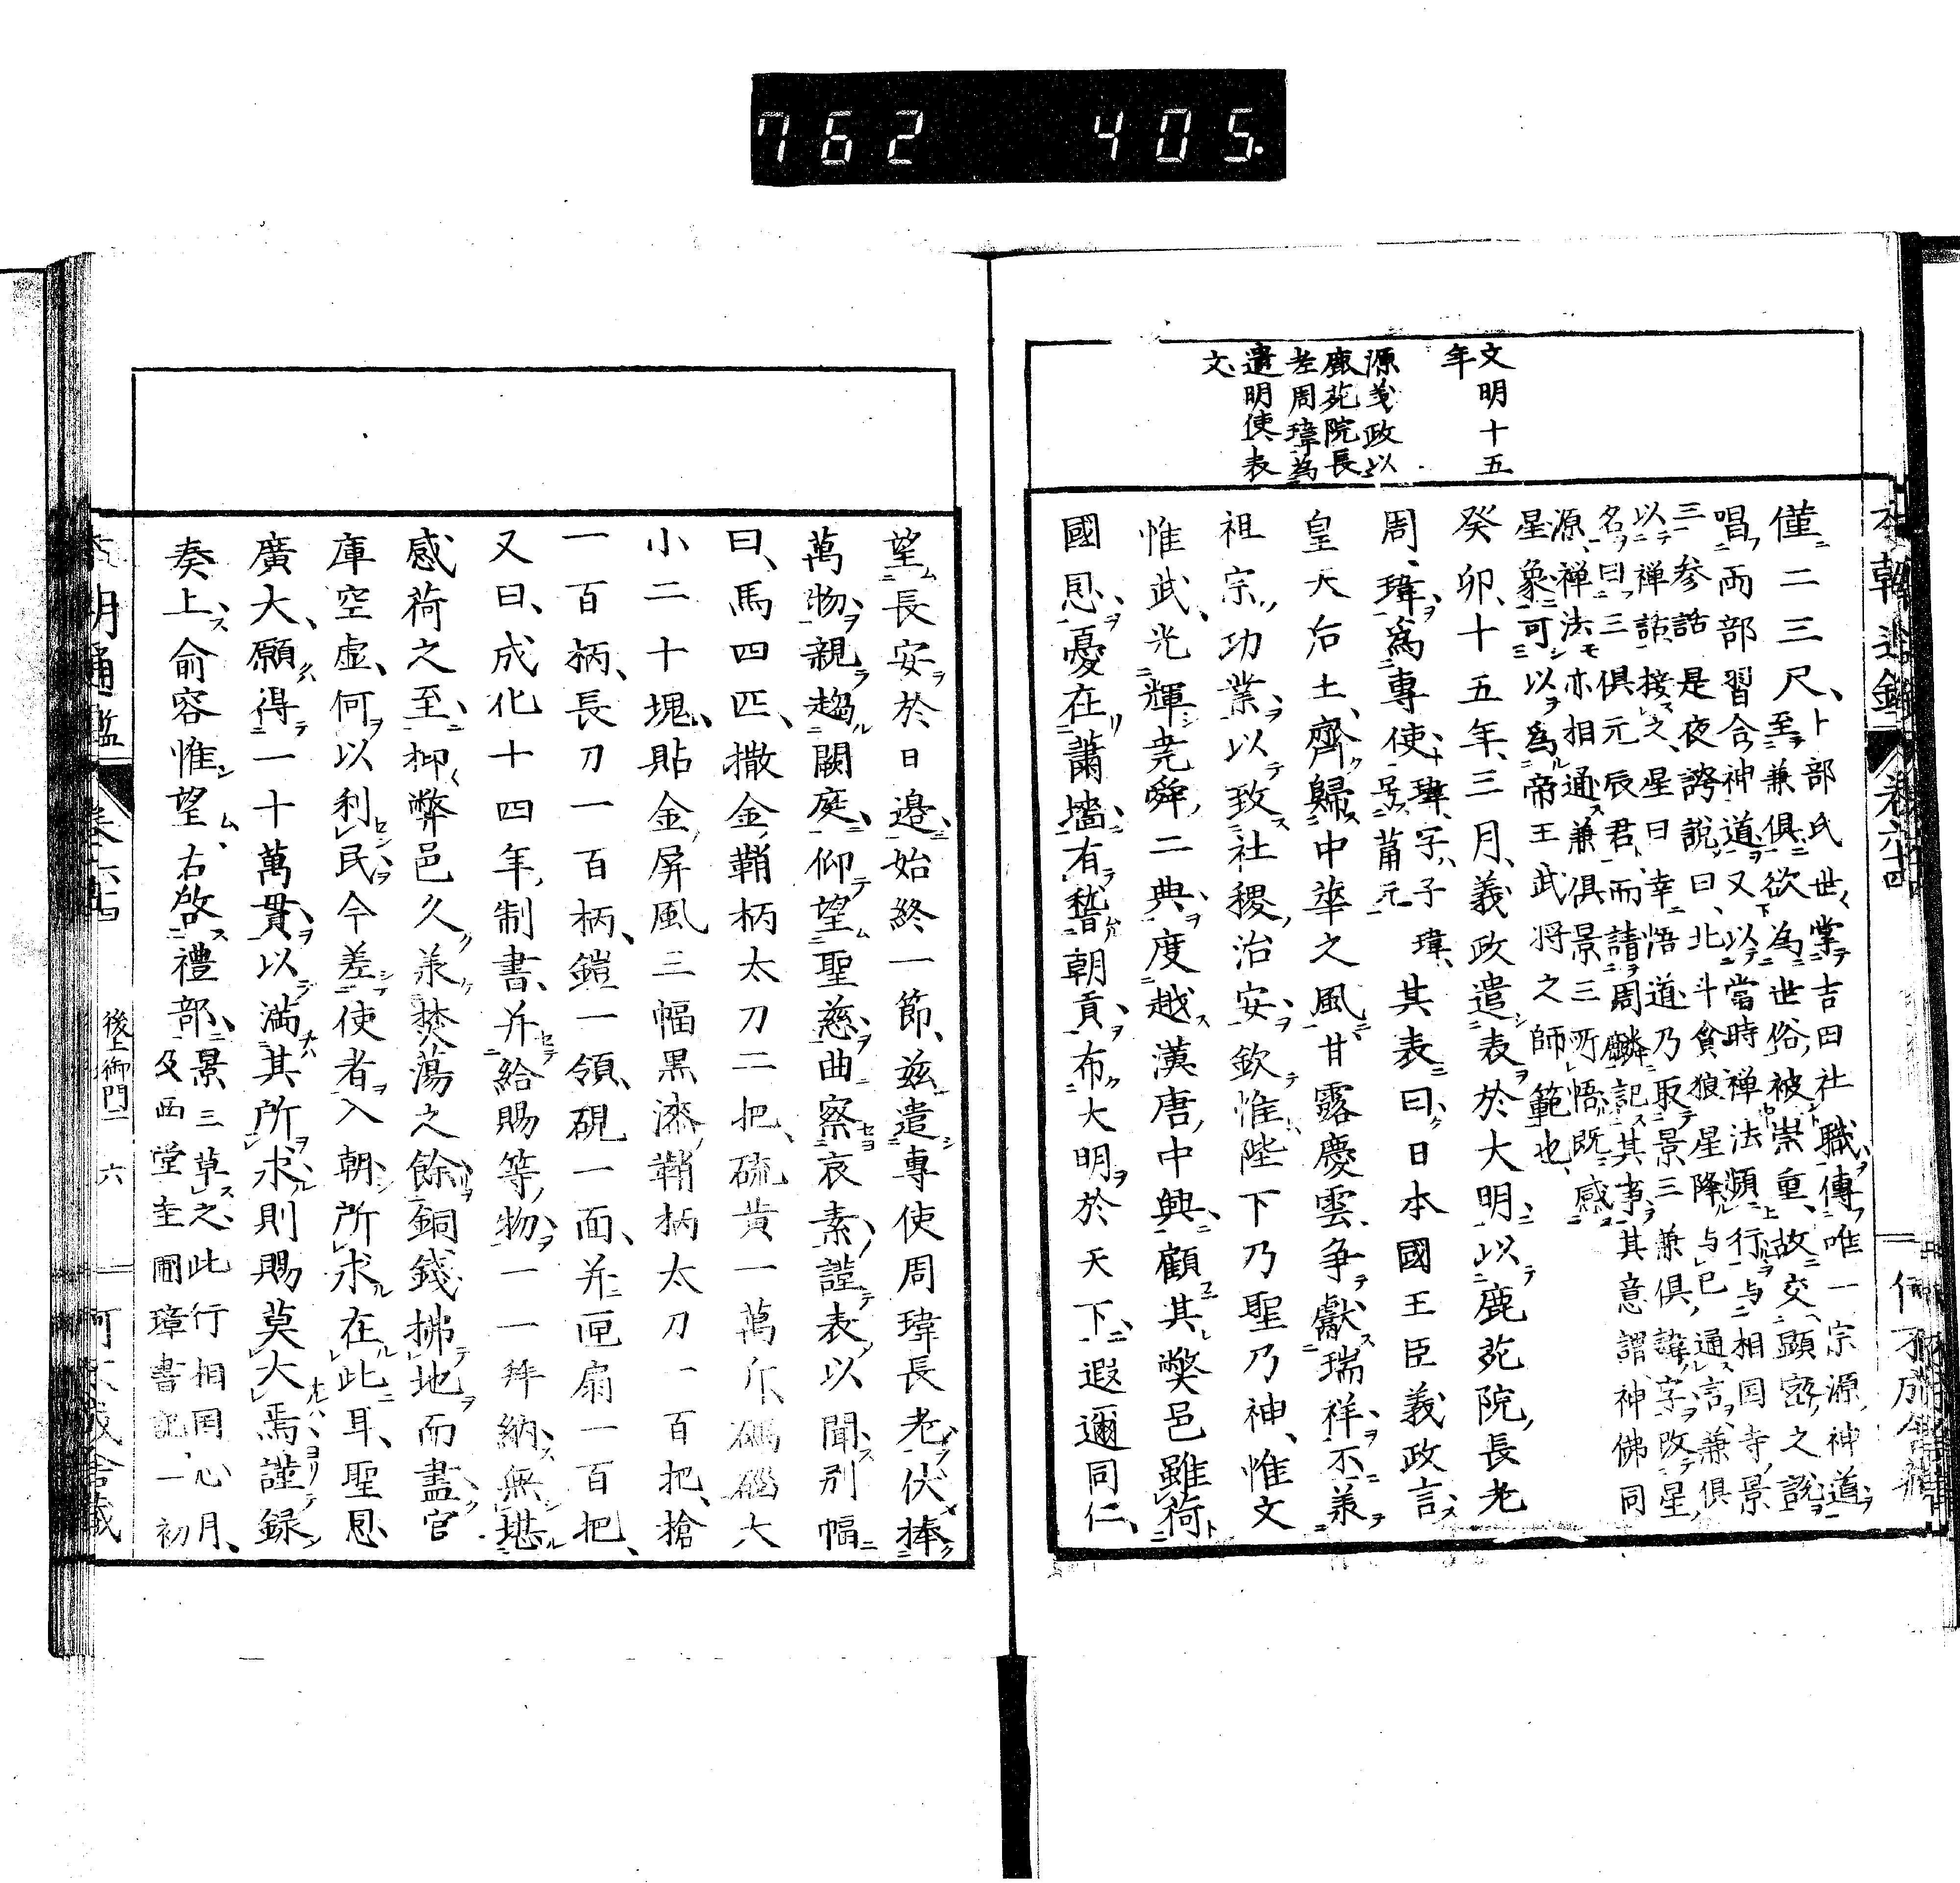 762 405.
文明十五
年
源義政以
鹿苑院長
老周瑋為
遣明使表
文
僅二三尺、卜部氏世掌吉田社職傳唯一宗源神道
至兼俱欲為世俗被崇重故交顕密之説
唱両部習合神道又以當時禅法頻行与相国寺景
三参話是夜謗説曰、北斗貪狼星降与已通言兼俱
以禅話接之、星曰幸悟道乃取景三兼俱諱字改星
名曰三俱元辰君而請周麟記其事其意謂神佛同
源、禅法亦相通兼俱景三所悟既感
星象可以為帝王武将之師範也、
癸卯、十五年、三月、義政遣表於大明以鹿苑院長老
周瑋為專使、瑋字子瑋、
號葡元
其表曰、日本國王臣義政言
皇天后土、齊歸中華之風甘露慶雲、争獻瑞祥不羕
祖宗功業以致社稷、治安、欽惟陛下乃聖乃神、惟文
惟武、光輝尭舜、二典度越漢唐、中興顧其獘邑雖荷
國恩憂在蕭墻有愆朝貢布大明於天下遐邇同仁、
望長安於日邉始終一節、兹遣專使周瑋長老伏捧
萬物親趨闕庭仰望聖慈曲察哀素謹表以聞别幅
曰、馬四匹、撒金鞘柄太刀二把、硫黄一萬斤、碼碯大
小二十塊、貼金屏風三幅黒漆鞘柄太刀一百把、搶
一百柄、長刀一百柄、鎧一領、硯一面、并匣扇一百把、
又曰、成化十四年、制書、并給賜等、物一一拜納無堪
感荷之至抑弊邑久羕焚蕩之餘銅錢掃地而盡官
庫空虚、何以利民今差使者入朝所求在此耳、聖恩
廣大、願得一十萬貫以満其所求則賜莫大焉謹録
奏上、俞容惟望右啓禮部、景三草之此行相国心月、
及西堂圭圃璋書記、一初
後土御門二 六